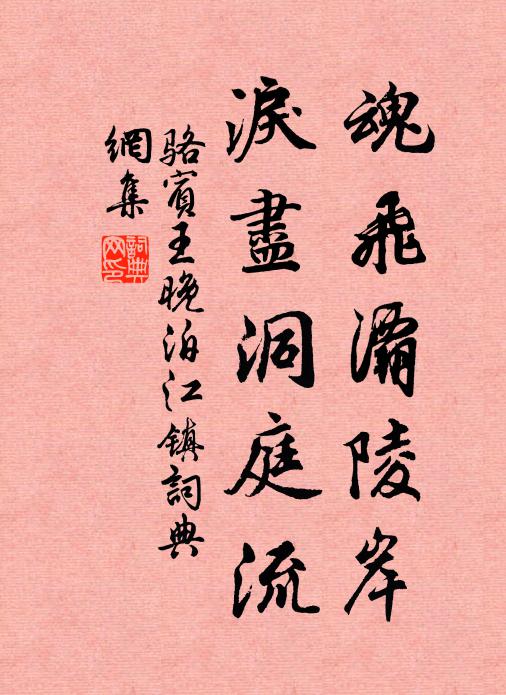 魂飛灞陵岸
淚盡洞庭流
駱賓王晚泊江鎮詞典
網集
詞典
网印